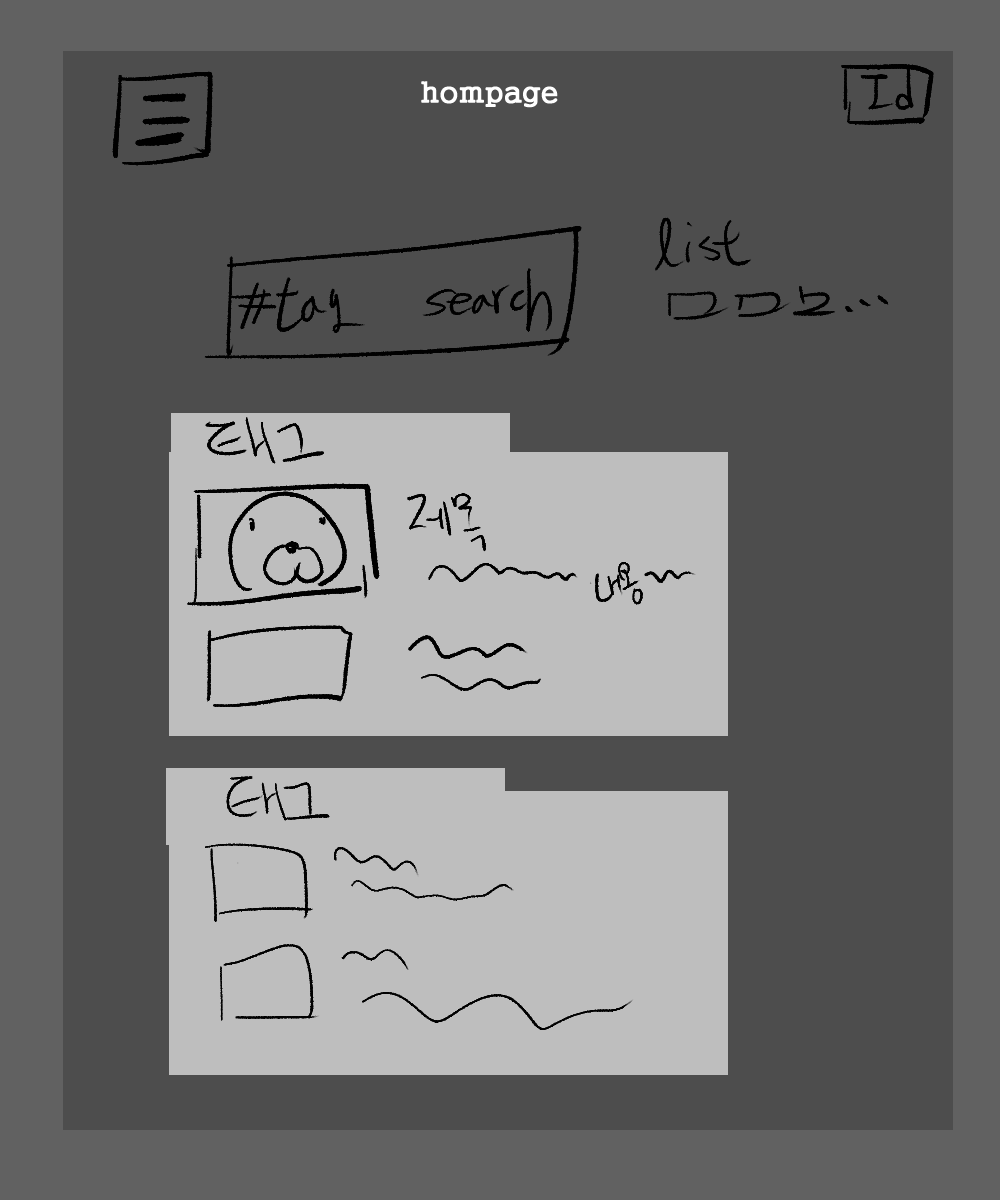 hompage
Id
#tag search
list
태그
제목
내용
태그